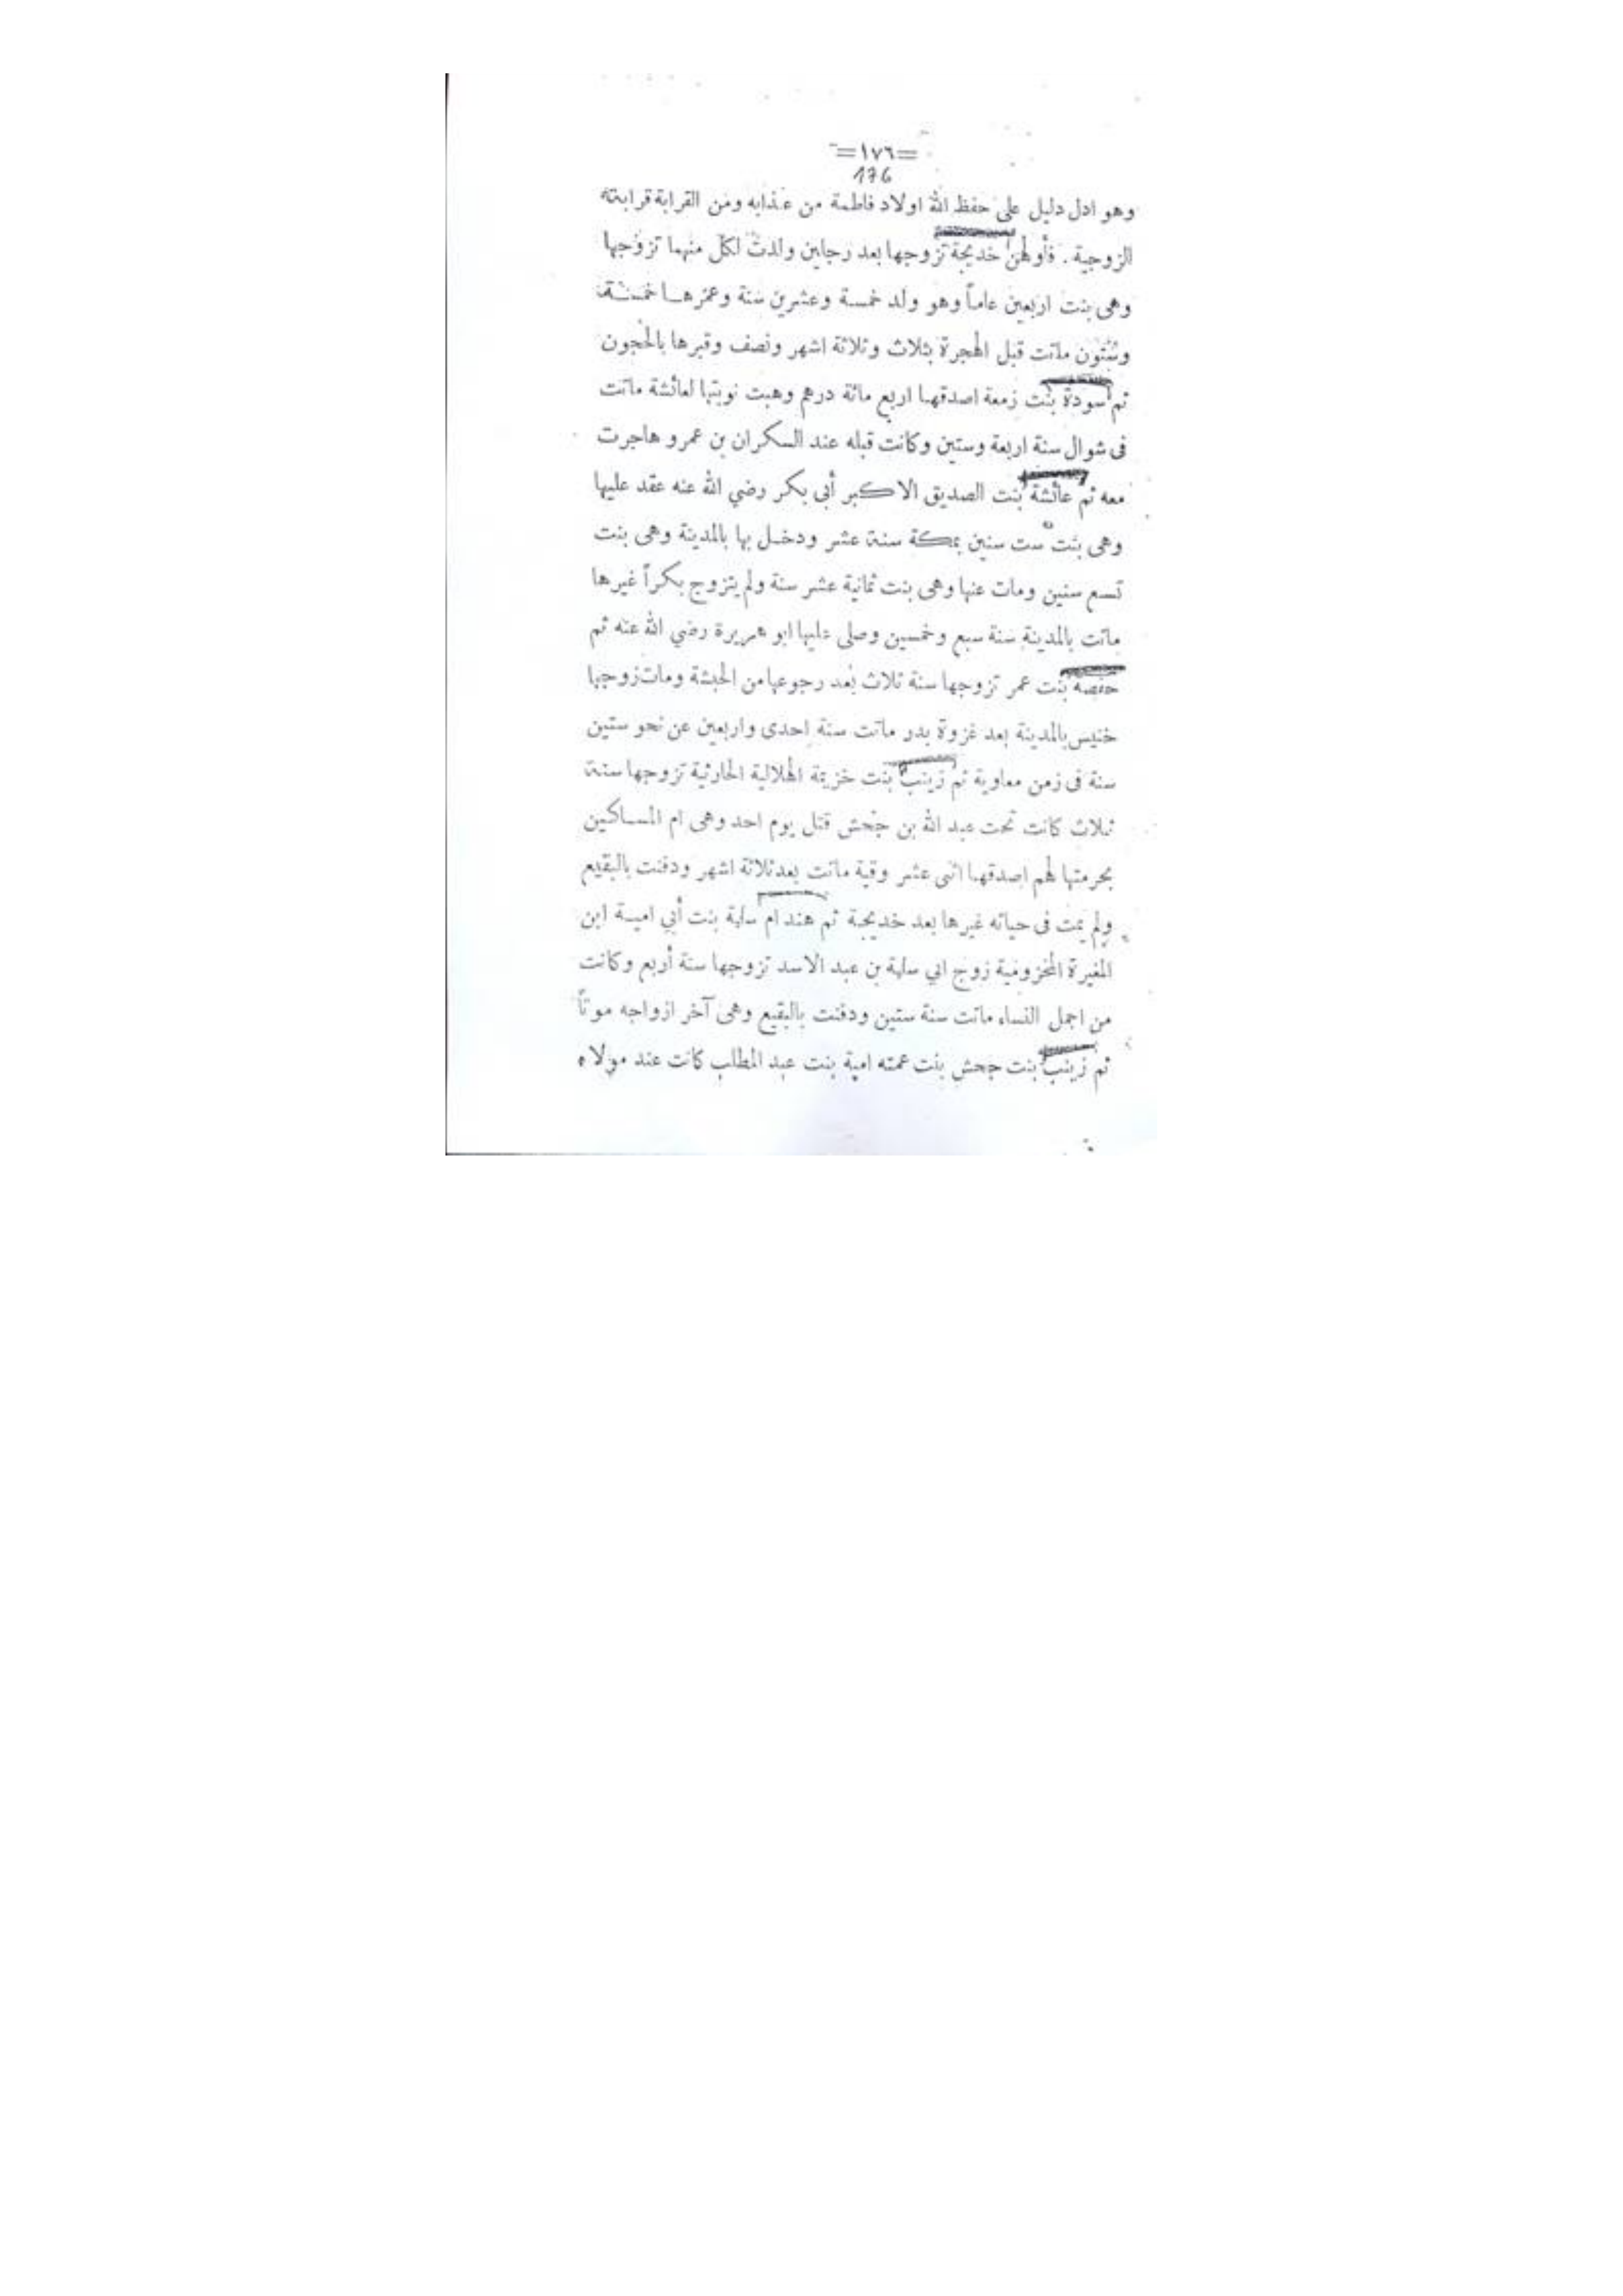 =١٧٦=
176
وهو ادل دليل على حفظ الله اولاد فاطمة من عذابه ومن القرابة قرابته
الزوجية . فأولهن خديجة تزوجها بعد رجلين ولدت لكل منهما تزوجها
وهى بنت اربعين عاماً وهو ولد خمسة وعشرين سنة وعمرها خمسة
وستون ماتت قبل الهجرة بثلاث وثلاثة اشهر ونصف وقبرها بالحجون
ثم سودة بنت زمعة اصدقها اربع مائة درهم وهبت نوبتها لعائشة ماتت
فى شوال سنة اربعة وستين وكانت قبله عند السكران بن عمرو هاجرت
معه ثم عائشة بنت الصديق الاكبر أبى بكر رضي الله عنه عقد عليها
وهى بنت ست سنين بمكة سنة عشر ودخل بها بالمدينة وهى بنت
تسع سنين ومات عنها وهى بنت ثمانية عشر سنة ولم يتزوج بكراً غيرها
ماتت بالمدينة سنة سبع وخمسين وصلى عليها ابو هريرة رضي الله عنه ثم
حفصة بنت عمر تزوجها سنة ثلاث بعد رجوعها من الحبشة ومات زوجها
خنيس بالمدينة بعد غزوة بدر ماتت سنة احدى واربعين عن نحو ستين
سنة فى زمن معاوية ثم زينب بنت خزيمة الهلالية الحارثية تزوجها سنة
ثلاث كانت تحت عبد الله بن جحش قتل يوم احد وهى ام المساكين
بحرمتها لهم اصدقها اثنى عشر وقية ماتت بعد ثلاثة اشهر ودفنت بالبقيع
ولم يمت فى حياته غيرها بعد خديجة ثم هند ام سلمة بنت أبي امية ابن
المغيرة المخزومية زوج ابي سلمة بن عبد الاسد تزوجها سنة أربع وكانت
من اجمل النساء ماتت سنة ستين ودفنت بالبقيع وهى آخر ازواجه موتاً
ثم زينب بنت جحش بنت عمته امية بنت عبد المطلب كانت عند مولاه